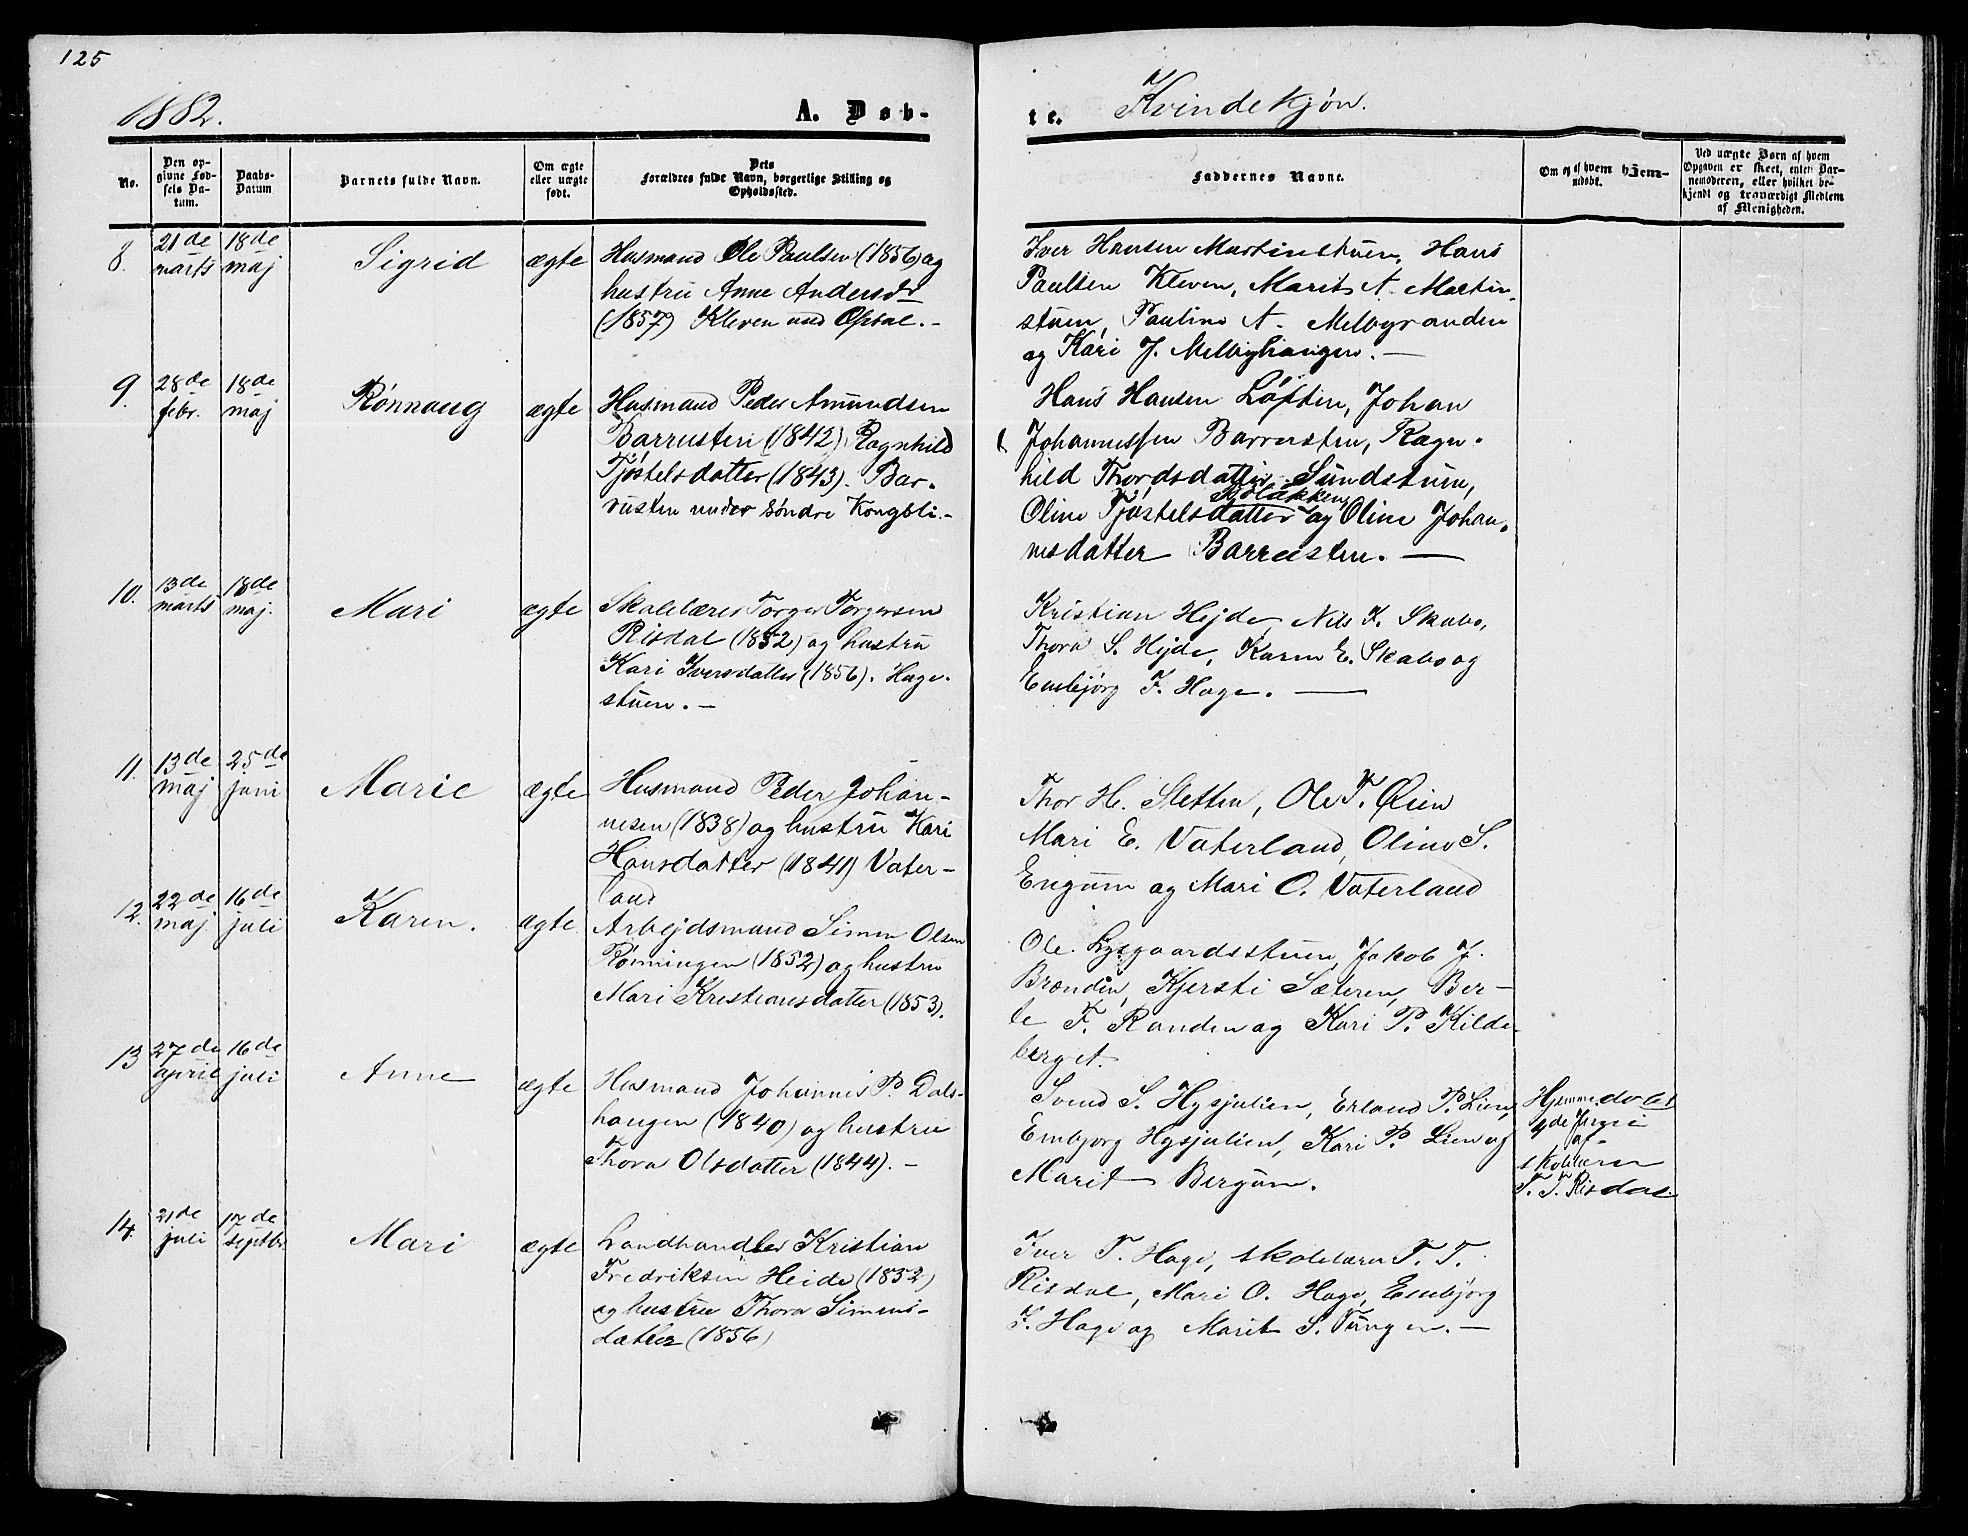 125
1882.
A. Døb-
te.
Kvindekjøn.
No.
Den op-
givne Fød-
sels Da-
tum.
Daabs-
Datum
Barnets fulde Navn.
Om ægte
eller uægte
født.
Dets
Forældres fulde Navn, borgerlige Stilling og
Opholdssted.
Faddernes Navne.
Om og af hvem hjem-
medøbt.
Ved uægte Børn af hvem
Opgaven er skeet, enten Bar-
nemoderen, eller hvilket be-
kjendt og troværdigt Medlem
af Menigheden.
8.
21de
marts
18de
maj
Sigrid
ægte
Husmand Ole Paulsen (1856) og
hustru Anne Andersdr
(1857) Kleven und
Iver Hansen Martinstuen, Hans
Paulsen Kleven, Marit A. Martin-
stuen, Pauline A. Melbyranden
og Kari J. Melbyhaugen. —
9.
28de
febr.
18de
maj
Rønnaug
ægte
Husmand Peder Amundsen
Barrusten (1842) Ragnhild
Tjøstelsdatter (1843). Bar-
rusten under søndre Kongsli. -
Hans Hansen Løften, Johan
Johannessen Barrusten, Ragn-
hild Thordsdatter Sundstuen,
Oline Tjøstelsdatter og Oline Johan-
nesdatter Barrusten. —
10.
13de
marts
18de
maj.
Mari
ægte
Skolelærer Torger Torgersen
Risdal (1852) og hustru
Kari Iversdatter (1856). Hage-
stuen. —
Kristian Hejde, Nils I. Skabo,
Thora S. Hejde, Karen E. Skabo og
Embjørg F. Hage. —
11.
13de
maj
25de
juni
Marie
ægte
Husmand Peder Johan-
nesen (1838) og hustru Kari
Hansdatter (1841) Vater-
land
Thor H. Sletten, Ole T. Øien
Mari E. Vaterland, Oline S.
Engum og Mari O. Vaterland
12.
22de
maj
16de
juli
Karen.
ægte
Arbejdsmand Simen Olsen
Rønningen (1852) og hustru
Mari Kristiansdatter (1853).
Ole Lysgaardsstuen, Jakob J.
Brænden, Kjersti Sæteren, Ber-
te F. Randen og Kari P. Kilde-
berget.
13
27de
april
16de
juli
Anne
ægte
Husmand Johannes P. Dals-
haugen (1840) og hustru
Thora Olsdatter (1844). -
Svend S. Hysjulien, Erland P. Lien,
Embjørg Hysjulien, Kari P. Lien og
Marit Bergum.
Hjemmedøbt
4de
af
skolelærer
T. T. Risdal.
14.
21de
juli
17de
septbr.
Mari
ægte
Landhandler Kristian
Fredriksen Heide (1852)
og hustru Thora Simens-
datter (1856)
Iver T. Hage, skolelærer T. T.
Risdal, Mari O. Hage, Embjørg
F. Hage og Marit S. Tungen. —